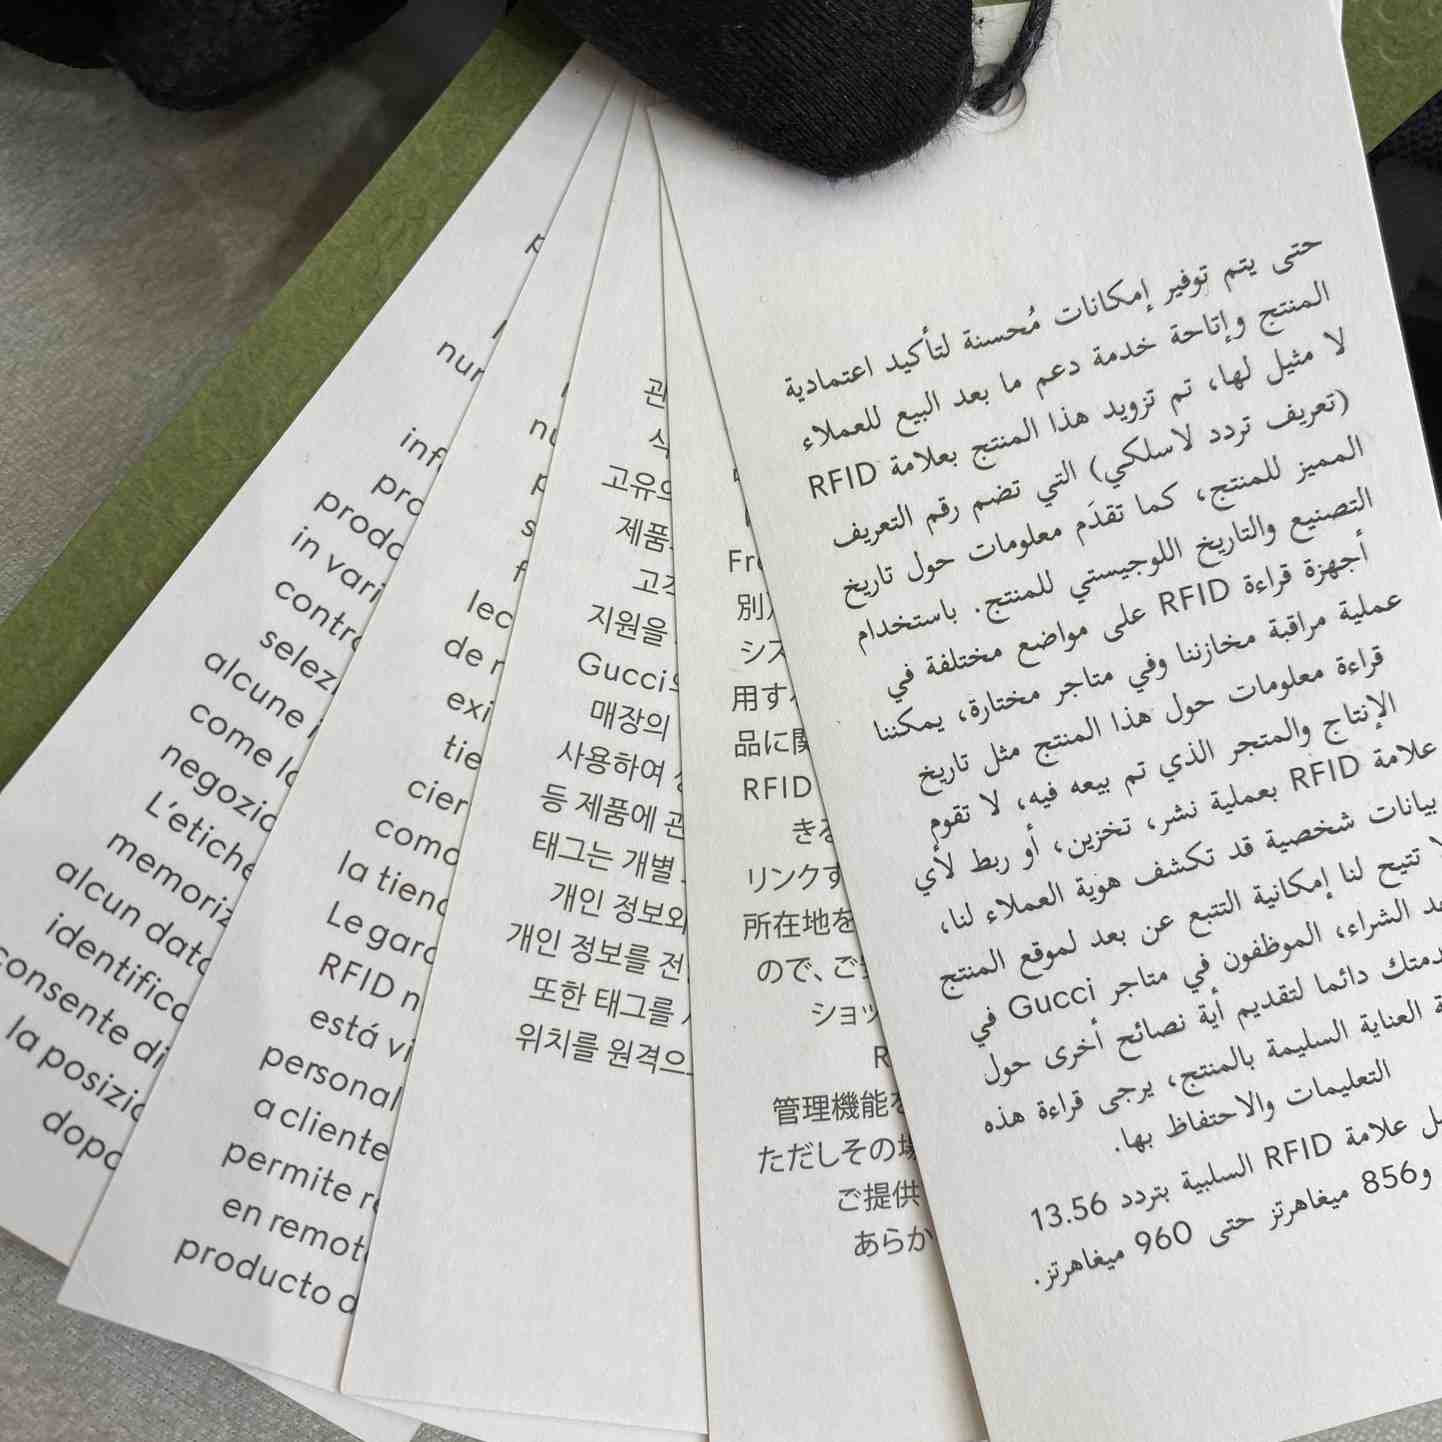 nur
inf
pro
prodo
in vari
contro
selezi
alcune i
come lo
negozio
L'etiche
memoriz
alcun dato
identifico
consente di
la posizio
dopo
nu
lec
de r
exi
tie
cier
como
la tiend
Le gard
RFID n
está vi
personal
a cliente
permite re
en remoto
producto d
관
식
고유의
제품
고객
지원을
Gucci의
매장의
사용하여
등 제품에 관
태그는 개별
개인 정보와
개인 정보를 전
또한 태그를
위치를 원격으
Fre
別
シス
用す
品に関
RFID
きる
リンクす
所在地を
ので、ご
ショッ
R
管理機能を
ただしその場
ご提供
あらか
حتى يتم توفير إمكانات مُحسنة لتأكيد اعتمادية
المنتج وإتاحة خدمة دعم ما بعد البيع للعملاء
لا مثيل لها، تم تزويد هذا المنتج بعلامة RFID
(تعريف تردد لاسلكي) التي تضم رقم التعريف
المميز للمنتج، كما تقدَم معلومات حول تاريخ
التصنيع والتاريخ اللوجيستي للمنتج. باستخدام
أجهزة قراءة RFID على مواضع مختلفة في
عملية مراقبة مخازننا وفي متاجر مختارة، يمكننا
قراءة معلومات حول هذا المنتج مثل تاريخ
الإنتاج والمتجر الذي تم بيعه فيه، لا تقوم
علامة RFID بعملية نشر، تخزين، أو ربط لأي
بيانات شخصية قد تكشف هوية العملاء لنا،
لا تتيح لنا إمكانية التتبع عن بعد لموقع المنتج
د الشراء، الموظفون في متاجر Gucci في
دمتك دائما لتقديم أية نصائح أخرى حول
ة العناية السليمة بالمنتج، يرجى قراءة هذه
التعليمات والاحتفاظ بها.
ل علامة RFID السلبية بتردد 13.56
و856 ميغاهرتز حتى 960 ميغاهرتز.